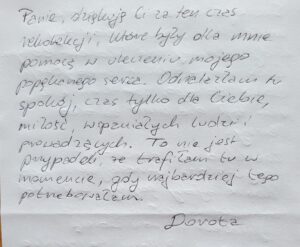 Panie, dziękuję Ci za ten czas
rekolekcji, które były dla mnie
pomocą w uleczeniu mojego
popękanego serca. Odnalazłam tu
spokój, czas tylko dla Ciebie,
miłość, wspaniałych ludzi i
prowadzących. To nie jest
przypadek że trafiłam tu w
momencie, gdy najbardziej tego
potrzebowałam.
Dorota